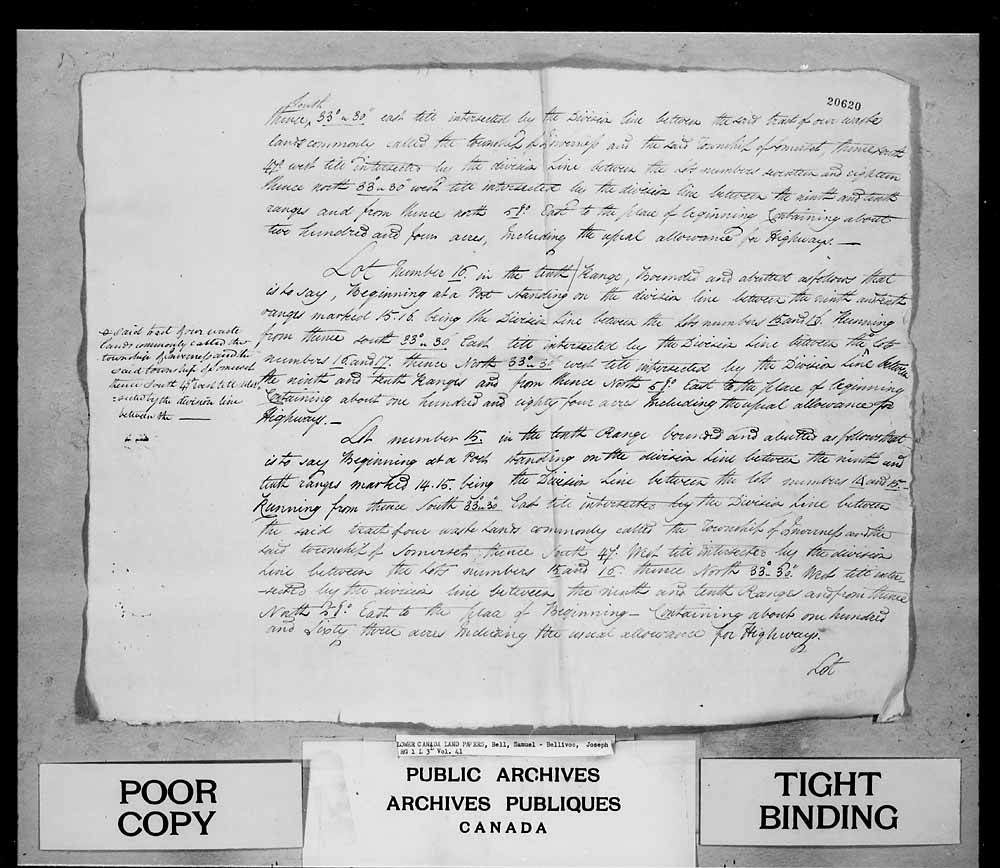 20620
South
thence, 33° " 30' east till intersected by the Division line between the said tract of our waste
lands commonly called the township of Inverness and the said Township of Somerset, thence south
47° west till intersected by the division Line between the Lots numbers seventeen and eighteen
thence north 33° " 30' west till intersected by the division line between the ninth and tenth
ranges and from thence north 58° East to the place of beginning Containing about
two hundred and four acres, Including the usual allowance for Highways. —
Lot Number 16. in the tenth Range, Bounded and abutted as follows that
is to say, Beginning at a Post standing on the division line between the ninth and tenth
ranges marked 15.16. being the Division Line between the Lots numbers 15. and 16. Running
from thence south 33° " 30' East till intersected by the Division Line between the Lots
numbers 16. and 17. thence North 33° " 30' west till intersected by the Division Line between
the ninth and Tenth Ranges and from thence North 58° East to the place of beginning
Containing about one hundred and eighty four acres Including the usual allowance for
Highways. —
+ said tract of our waste
lands commonly called the
township of Inverness and the
said township of Somerset
thence South 47° west till inter-
-sected by the division line
between the —
Lot number 15. in the tenth Range bounded and abutted as follows that
is to say Beginning at a Post standing on the division Line between the ninth and
tenth ranges marked 14.15. being the Division Line between the lots numbers 14 and 15.
Running from thence South 33° " 30' East till intersected by the Division Line between
the said tract of our waste Lands commonly called the Township of Inverness and the
said township of Somerset, thence South 47° West till intersected by the division
Line between the Lots numbers 15 and 16. thence North 33° " 30' West till inter
-sected by the division line between the ninth and tenth Range and from thence
North 58° East to the place of Beginning — Containing about one hundred
and Sixty three acres Including the usual allowance for Highways.
Lot
LOWER CANADA LAND PAPERS, Bell, Samuel - Bellivoo, Joseph
RG 1 L 3ᴸ Vol. 41
POOR
COPY
PUBLIC ARCHIVES
ARCHIVES PUBLIQUES
CANADA
TIGHT
BINDING